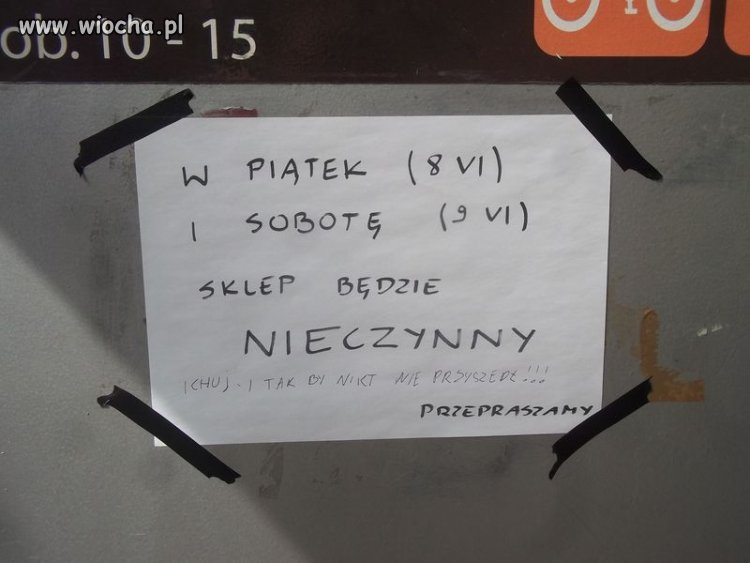 www.wiocha.pl
ob. 10 - 15
W PIĄTEK (8 VI)
I SOBOTĘ (9 VI)
SKLEP BĘDZIE
NIECZYNNY
I CHUJ. I TAK BY NIKT NIE PRZYSZEDŁ!!!
PRZEPRASZAMY